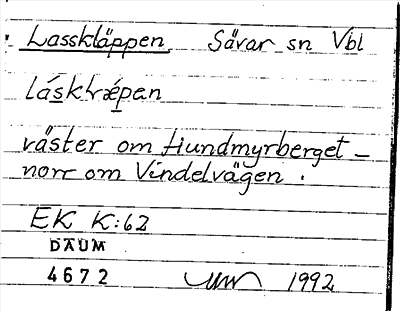 Lasskläppen Sävar sn Vbl
lásklǽpen
väster om Hundmyrberget -
norr om Vindelvägen .
EK K:62
DAUM
4672 1992